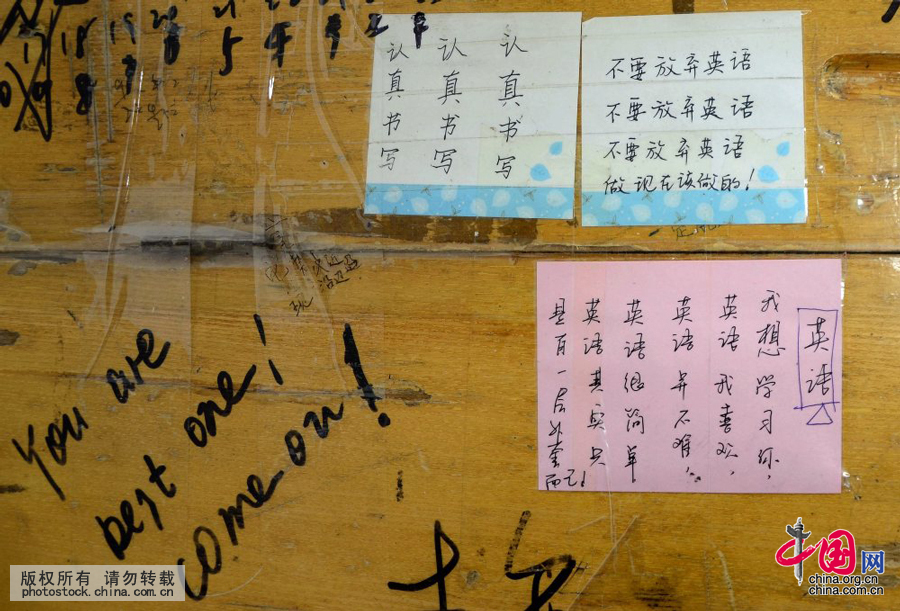 18 19
5
认真书写
认真书写
认真书写
不要放弃英语
不要放弃英语
不要放弃英语
做现在该做的!
英语
我想学习你,
英语 我喜欢,
英语 并不难,
英语很简单
英语其实只
是有一层外套
而已!
You are
best one!
come on!
版权所有 请勿转载
photostock.china.com.cn
中国网
china.org.cn
china.com.cn